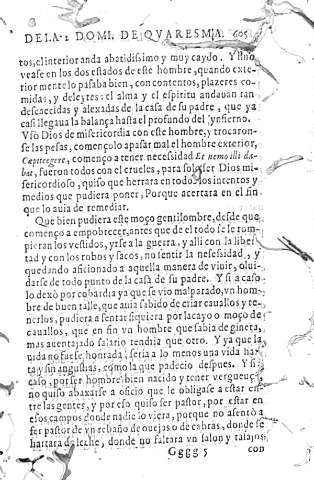 DE LA 2 DOMI. DE QVARESMA. 605
tos, el interior anda abatidissimo y muy caydo. Y sino
vease en los dos estados de este hombre, quando exte-
riormente lo passaba bien, con contentos, plazeres co-
midas, y deleytes: el alma y el espiritu andauan tan
descaecidas y alexadas de la casa de su padre, que ya
casi llegaua la balança hasta el profundo del ynfierno.
Vsò Dios de misericordia con este hombre, y trocaron-
se las pesas, començolo apasar mal el hombre exterior,
Cæpit egere, començo a tener necessidad Et nemo illi da-
bat, fueron todos con el crueles, para solo ser Dios mi-
sericordioso, quiso que herrara en todo los intentos y
medios que pudiera poner, Porque acertara en el fin
que lo auia de remediar.
Que bien pudiera este moço gentilhombre, desde que
començo a empobrecer, antes que de todo se le rom-
pieran los vestidos, yrse a la guerra, y alli con la liber-
tad y con los robos y sacos, no sentir la nesessidad, y
quedando aficionado a aquella manera de viuir, olui-
darse de todo punto de la casa de su padre. Y si a caso
lo dexò por cobardia ya que se vio mal parado, vn hom-
bre de buen talle, que auia sabido de criar cauallos y te-
nerlos, pudiera asentar siquiera por lacayo o moço de
cauallos, que en fin vn hombre que sabia de gineta,
mas auentajado salario tendria que otro. Y ya que la
vida no fuese honrada, seria a lo menos una vida har-
ta y sin angustias, como la que padecio despues. Y si a
caso, por ser hombre bien nacido y tener vergueuç
no quiso abaxarse a oficio que le obligase a estar en-
tre las gentes, y por eso quiso ser pastor, por estar en
esos campos donde nadie lo viera, porque no asentò a
ser pastor de vn rebaño de ouejas o de cabras, donde se
hartara de leche, donde no faltara vn salon y tasajos
Gggg 5 con